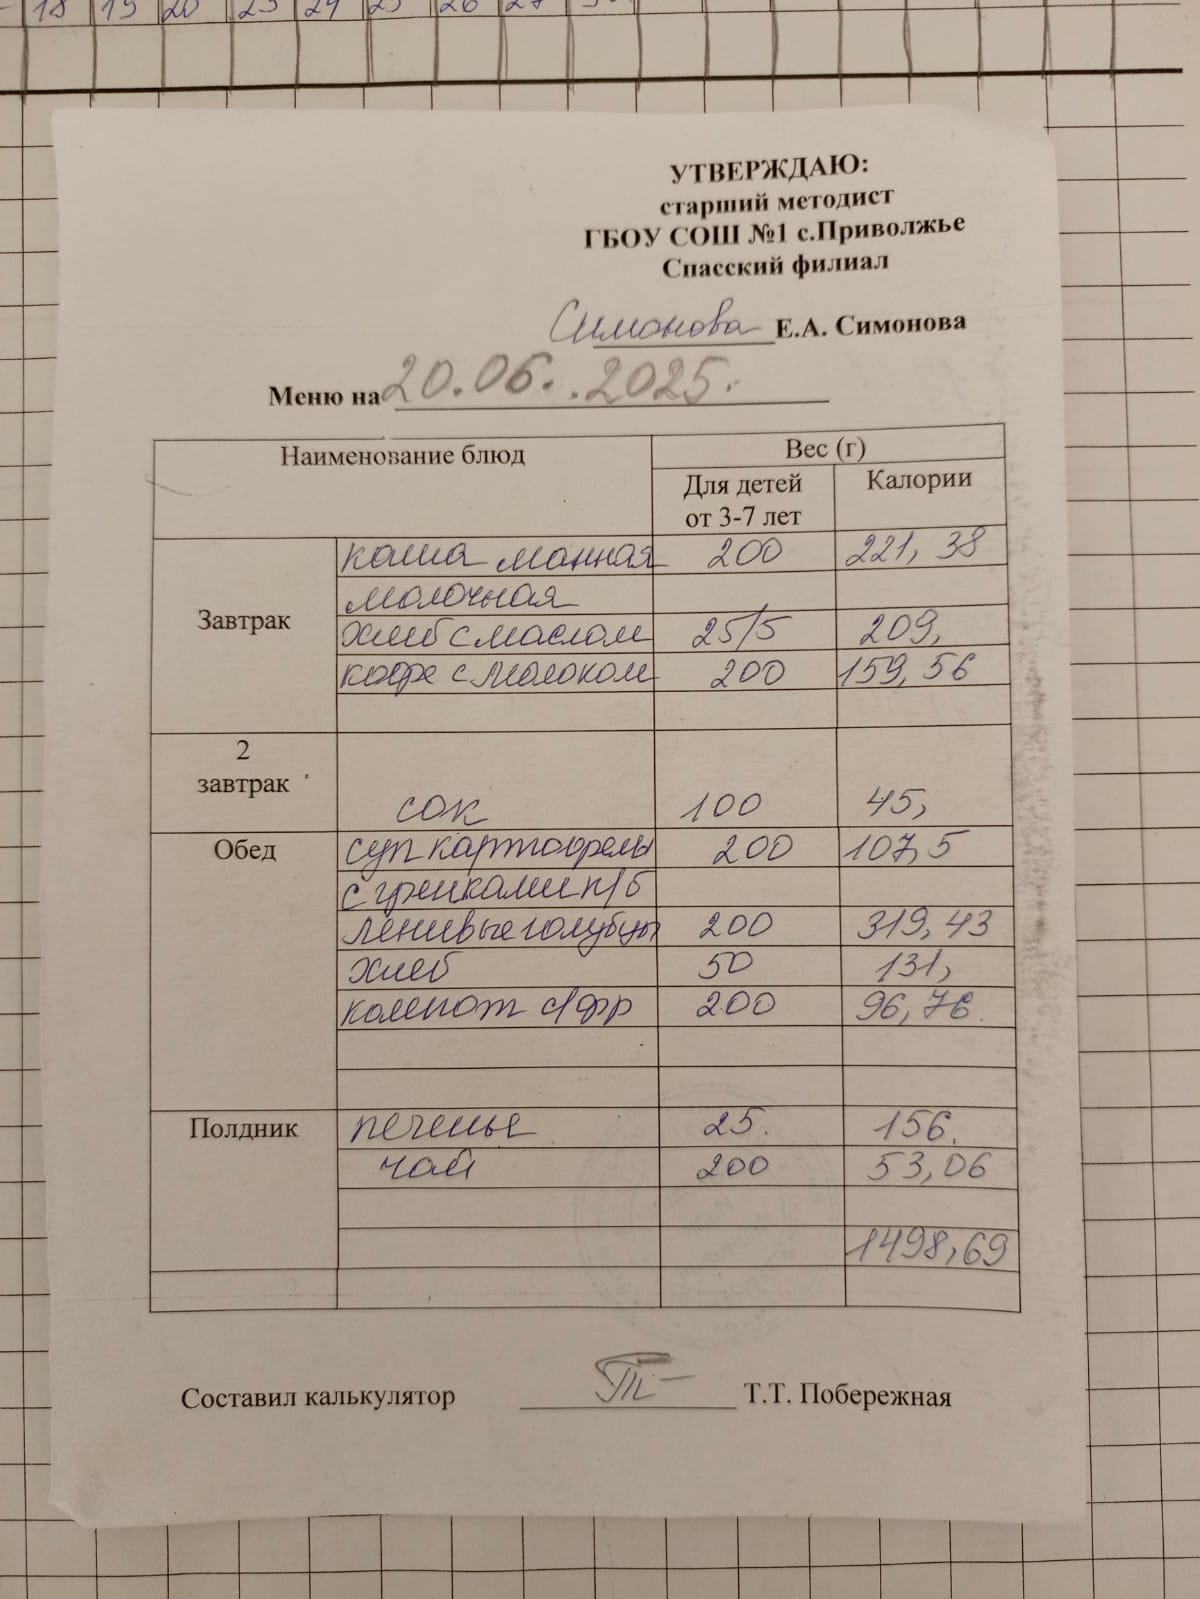 18 19 20 23 24 25 26 27 30
УТВЕРЖДАЮ:
старший методист
ГБОУ СОШ №1 с.Приволжье
Спасский филиал
Симонова Е.А. Симонова
Меню на 20.06.2025.
Наименование блюд Вес (г)
Для детей от 3-7 лет Калории
Завтрак каша манная 200 221,38
молочная
хлеб с маслом 25/5 209,
кофе с молоком 200 159,56
2 завтрак сок 100 45,
Обед суп картофелы 200 107,5
с гренками п/б
ленивые голубцы 200 319,43
хлеб 50 131,
компот с/фр 200 96,76.
Полдник печенье 25. 156.
чай 200 53,06
1498,69
Составил калькулятор Т.Т. Побережная